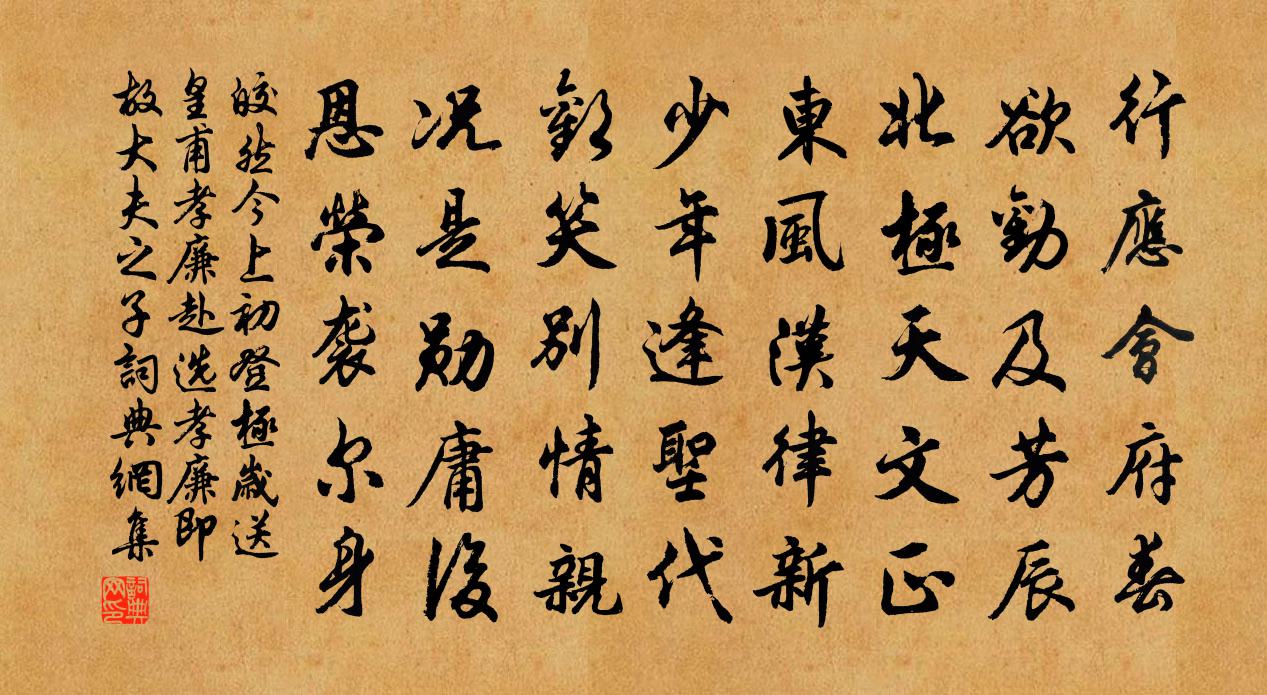 行應會府春
欲勸及芳辰
北極天文正
東風漢律新
少年逢聖代
歡笑別情親
況是勛庸後
恩榮襲尔身
皎然今上初登極歲送
皇甫孝廉赴选孝廉即
故大夫之子詞典網集
詞典网印